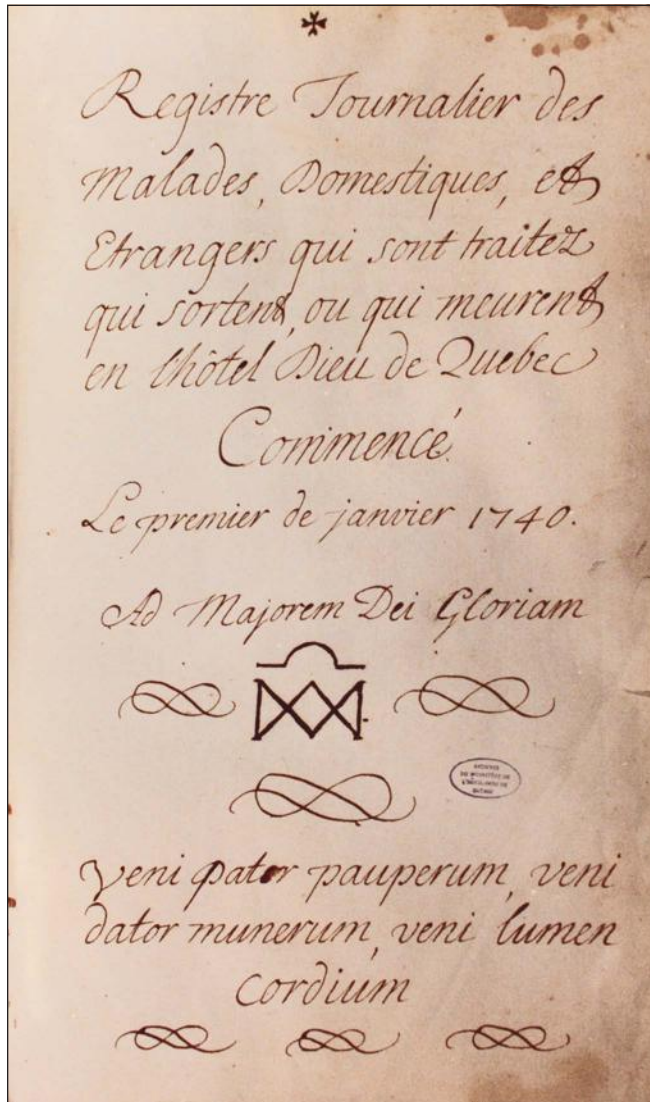 Registre Journalier des
Malades, Domestiques, et
Etrangers qui sont traitez
qui sortent, ou qui meurent
en lhôtel Dieu de Quebec
Commencé.
Le premier de janvier 1740.
Ad Majorem Dei Gloriam
ARCHIVES
DU MONASTÈRE DE
QUÉBEC
Veni pater pauperum, veni
dator munerum, veni lumen
Cordium